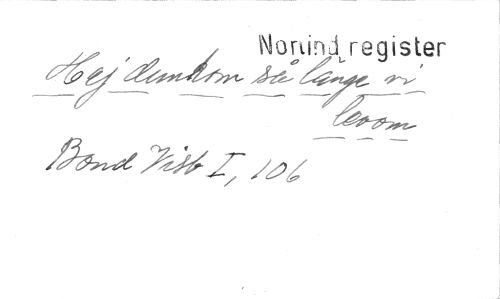 Norlind register
Hej dunkom så länge vi
levom
Bond Visb I, 106